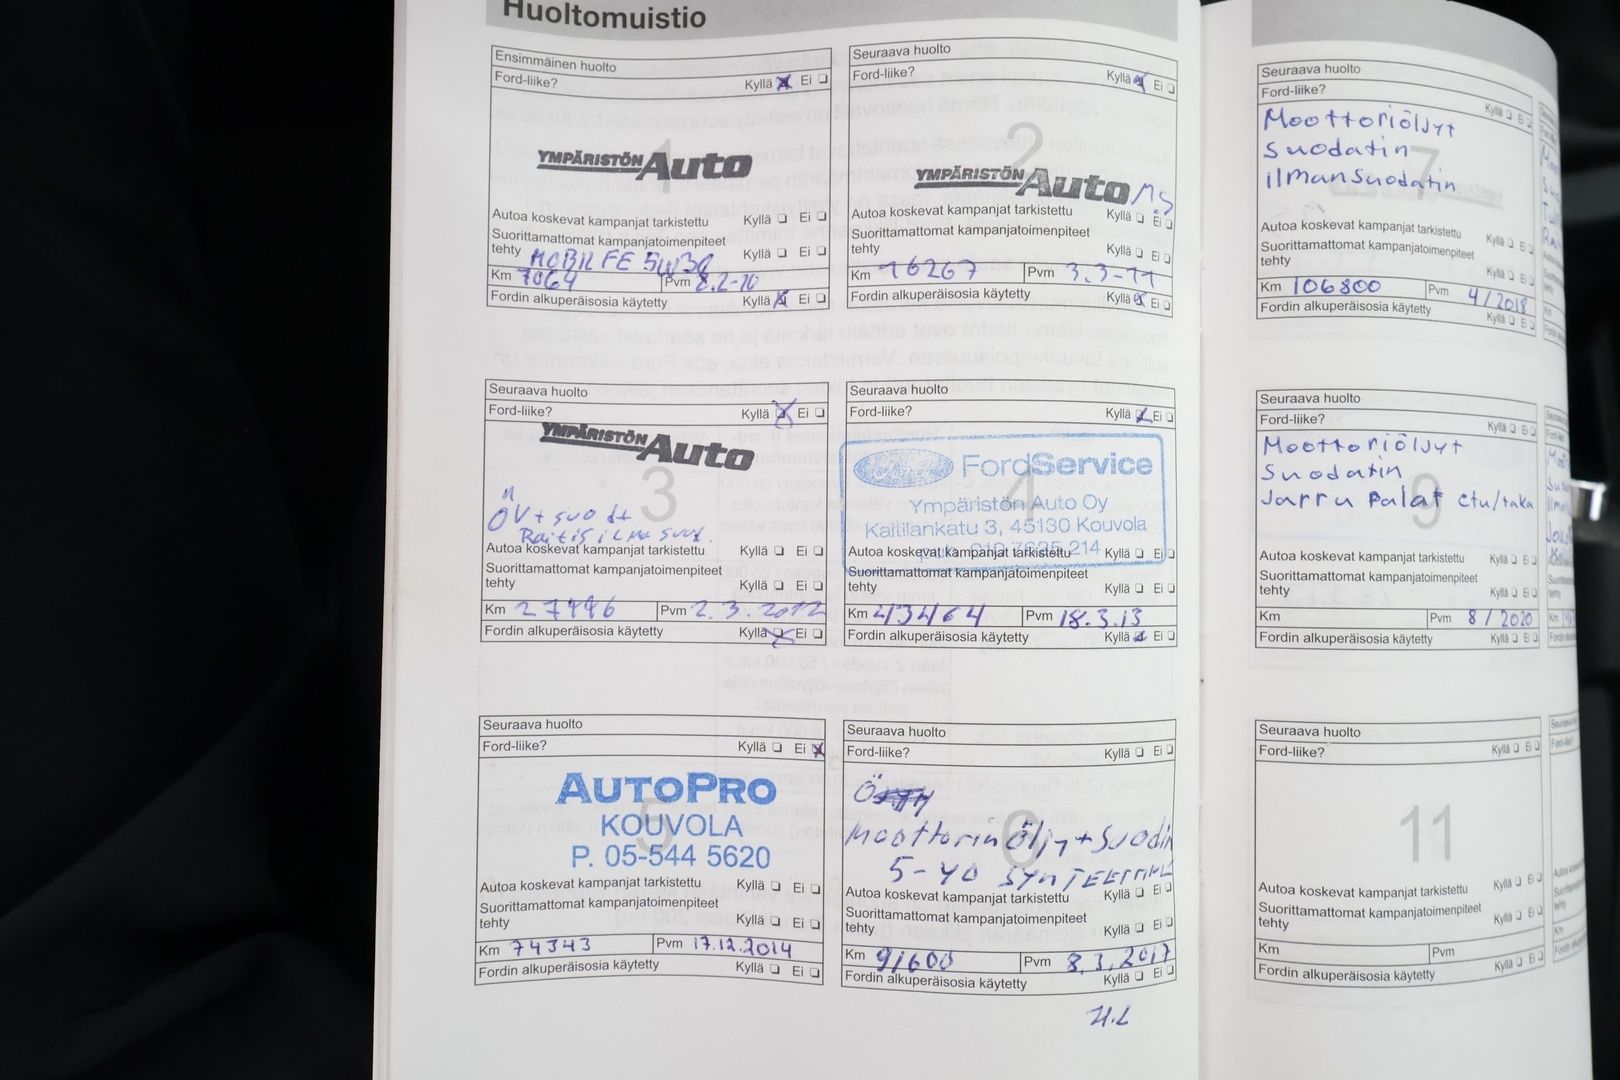 Huoltomuistio
Ensimmäinen huolto
Ford-liike? Kyllä Ei
1
YMPÄRISTÖN Auto
Autoa koskevat kampanjat tarkistettu Kyllä Ei
Suorittamattomat kampanjatoimenpiteet
tehty Kyllä Ei
MOBIL FE 5W30
Km 7064 Pvm 8.2-10
Fordin alkuperäisosia käytetty Kyllä Ei
Seuraava huolto
Ford-liike? Kyllä Ei
2
YMPÄRISTÖN Auto
Autoa koskevat kampanjat tarkistettu Kyllä Ei
Suorittamattomat kampanjatoimenpiteet
tehty Kyllä Ei
Km 16267 Pvm 3.3-11
Fordin alkuperäisosia käytetty Kyllä Ei
Seuraava huolto
Ford-liike? Kyllä Ei
YMPÄRISTÖN Auto
3
ÖV + suodt
Raitis ilma suod.
Autoa koskevat kampanjat tarkistettu Kyllä Ei
Suorittamattomat kampanjatoimenpiteet
tehty Kyllä Ei
Km Pvm 2.3.2012
Fordin alkuperäisosia käytetty Kyllä Ei
Seuraava huolto
Ford-liike? Kyllä Ei
4
Ford FordService
Ympäristön Auto Oy
Kaitilankatu 3, 45130 Kouvola
puh. 010 7625 214
Autoa koskevat kampanjat tarkistettu Kyllä Ei
Suorittamattomat kampanjatoimenpiteet
tehty Kyllä Ei
Km 43464 Pvm 18.3.13
Fordin alkuperäisosia käytetty Kyllä Ei
Seuraava huolto
Ford-liike? Kyllä Ei
5
AUTOPRO
KOUVOLA
P. 05-544 5620
Autoa koskevat kampanjat tarkistettu Kyllä Ei
Suorittamattomat kampanjatoimenpiteet
tehty Kyllä Ei
Km 74343 Pvm 17.12.2014
Fordin alkuperäisosia käytetty Kyllä Ei
Seuraava huolto
Ford-liike? Kyllä Ei
6
Moottorinöljy + Suodin
5-40 SYNTEETTINE
Autoa koskevat kampanjat tarkistettu Kyllä Ei
Suorittamattomat kampanjatoimenpiteet
tehty Kyllä Ei
Km 91600 Pvm 8.3.2017
Fordin alkuperäisosia käytetty Kyllä Ei
Seuraava huolto
Ford-liike? Kyllä Ei
7
Moottoriöljyt
Suodatin
ilmansuodatin
Autoa koskevat kampanjat tarkistettu Kyllä Ei
Suorittamattomat kampanjatoimenpiteet
tehty Kyllä Ei
Km 106800 Pvm 4/2018
Fordin alkuperäisosia käytetty Kyllä Ei
Seuraava huolto
Ford-liike? Kyllä Ei
9
Moottoriöljyt
Suodatin
Jarru palat etu/taka
Autoa koskevat kampanjat tarkistettu Kyllä Ei
Suorittamattomat kampanjatoimenpiteet
tehty Kyllä Ei
Km Pvm 8/2020
Fordin alkuperäisosia käytetty Kyllä Ei
Seuraava huolto
Ford-liike? Kyllä Ei
11
Autoa koskevat kampanjat tarkistettu Kyllä Ei
Suorittamattomat kampanjatoimenpiteet
tehty Kyllä Ei
Km Pvm
Fordin alkuperäisosia käytetty Kyllä Ei